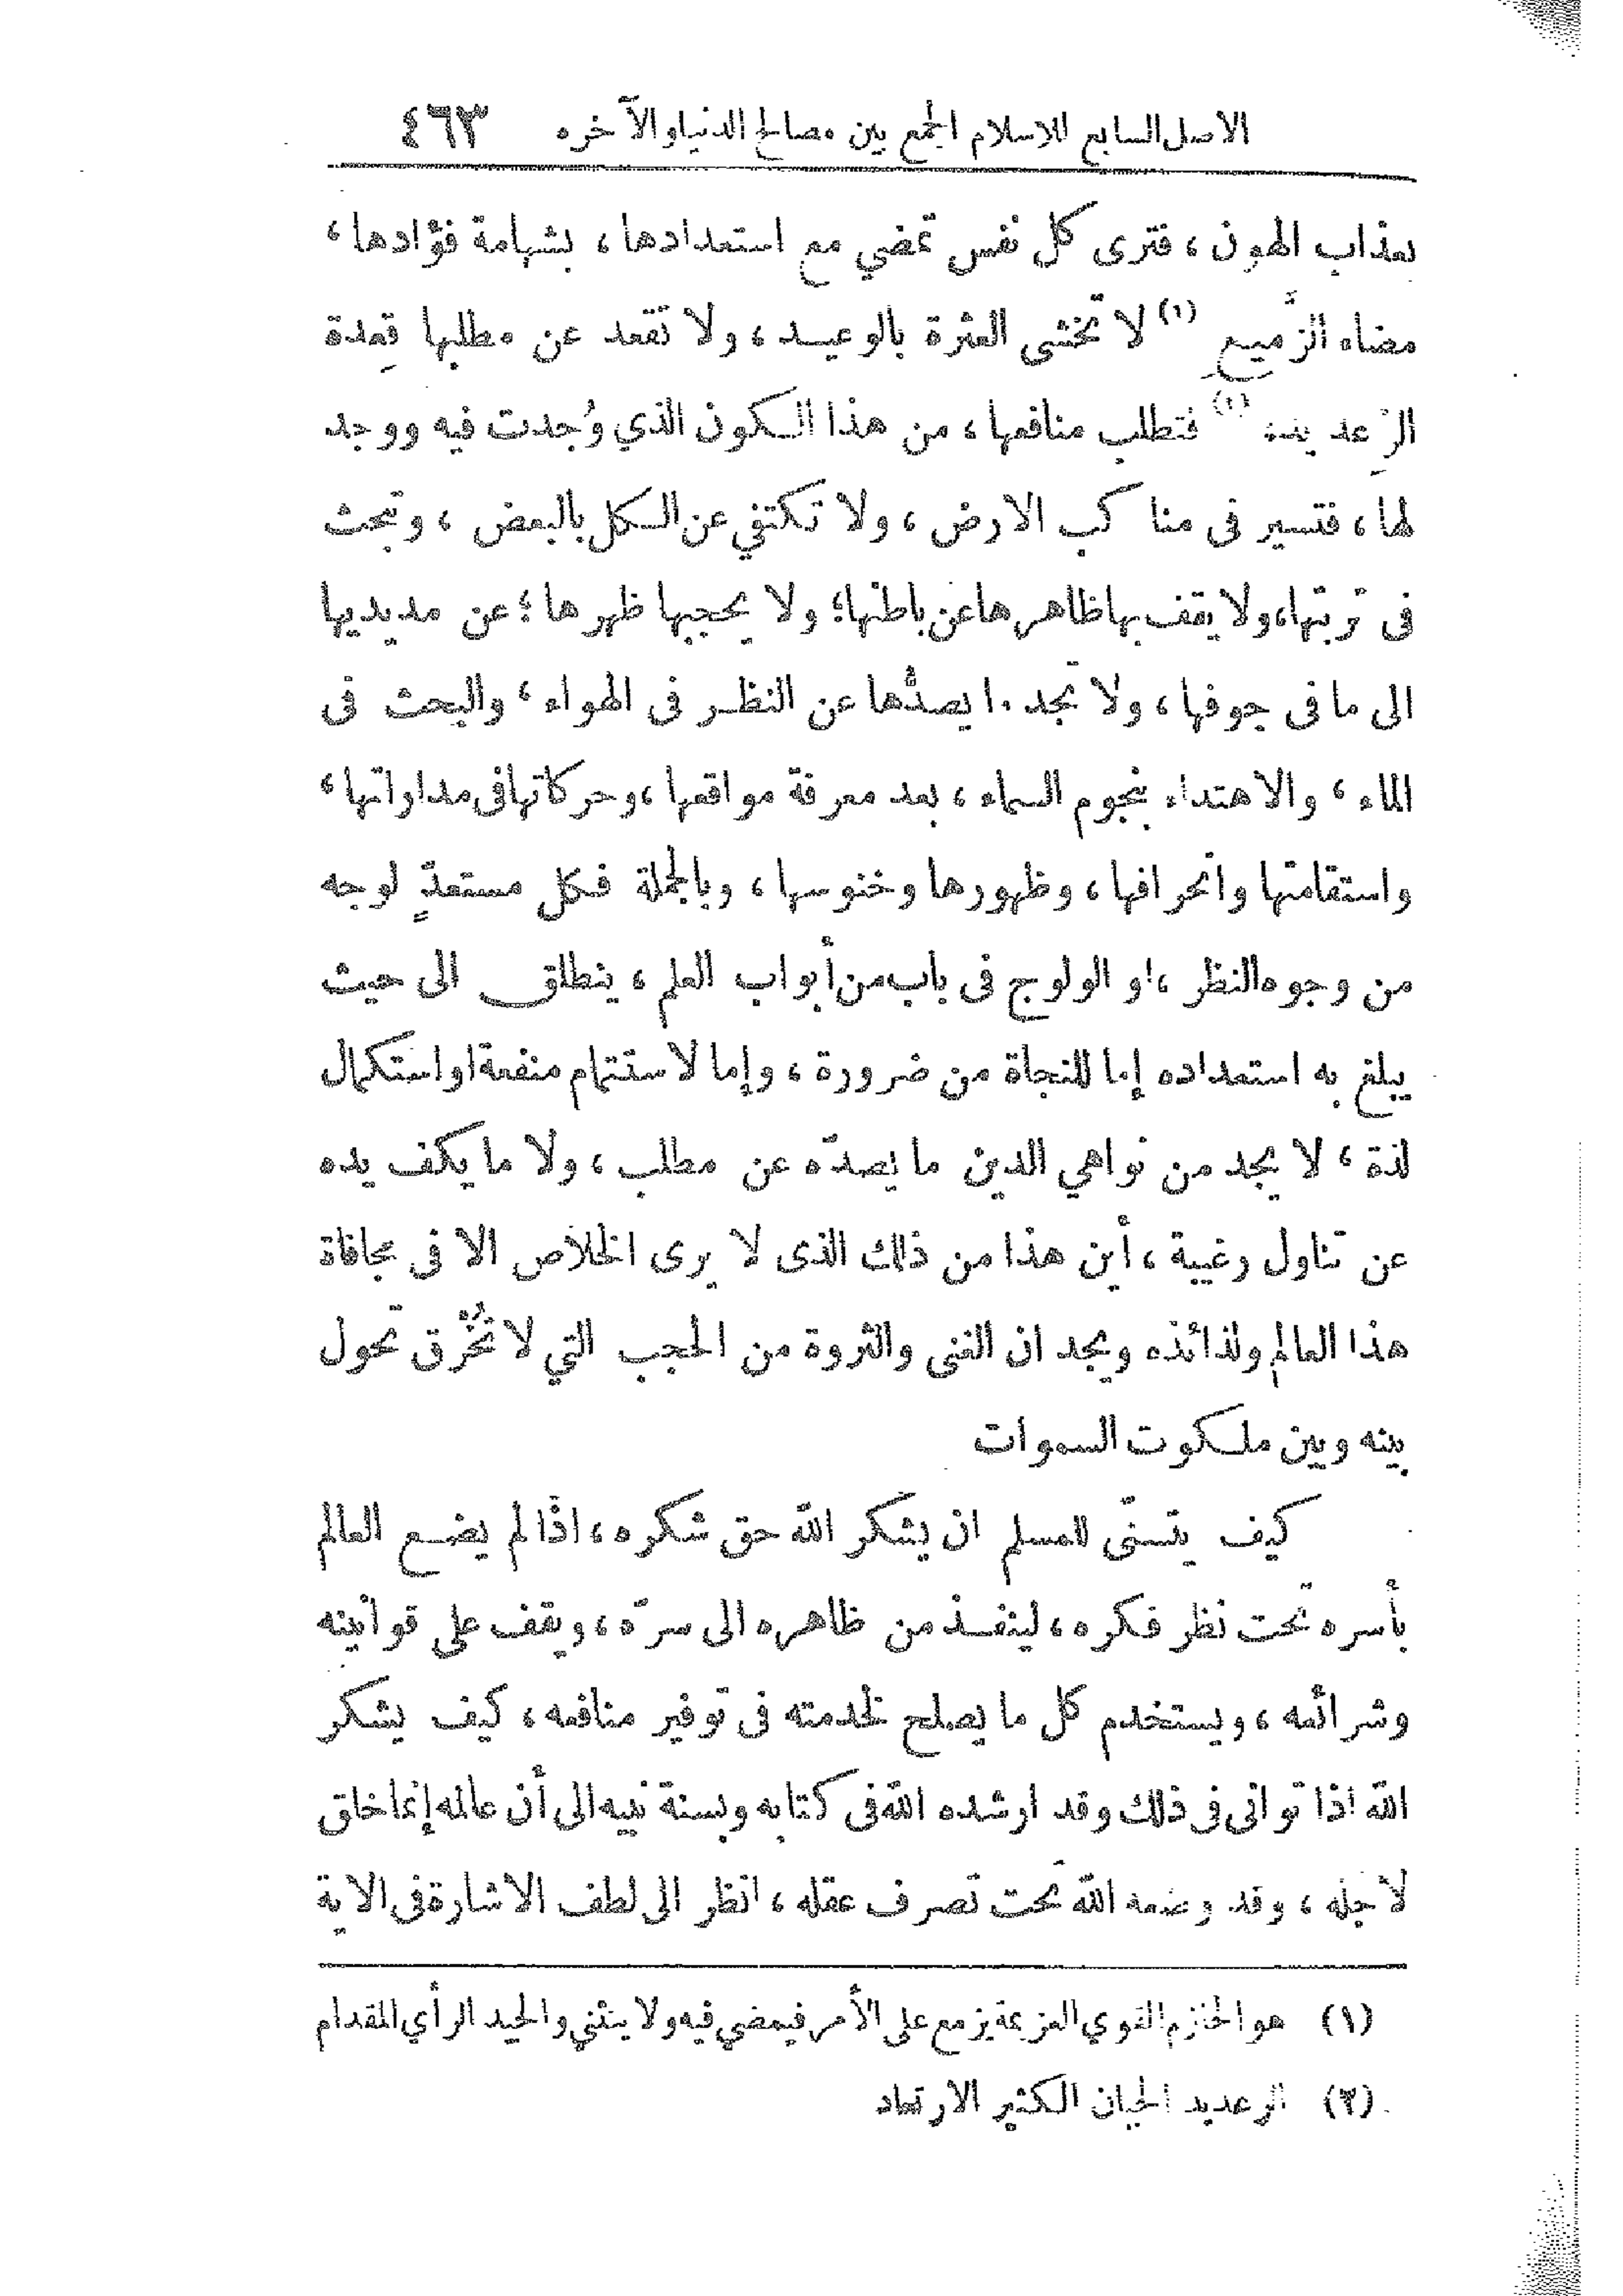 الاصل السابع للاسلام الجمع بين مصالح الدنيا والآخره ٤٦٣
بعذاب الهون ، فترى كل نفس تمضي مع استعدادها ، بشهامة فؤادها ،
مضاء الزَّميع (١) لا تخشى العثرة بالوعيد ، ولا تقعد عن مطلبها قِعدة
الرِّعديد (٢) فتطلب منافعها ، من هذا الكون الذي وُجدت فيه ووجد
لها ، فتسير فى مناكب الارض ، ولا تكتفي عن الكل بالبعض ، وتبحث
فى تربتها، ولا يقف بها ظاهرها عن باطنها؛ ولا يحجبها ظهرها ؛ عن مد يديها
الى ما فى جوفها ، ولا تجد ما يصدُّها عن النظر فى الهواء ، والبحث فى
الماء ، والاهتداء بنجوم السماء ، بعد معرفة مواقعها ، وحركاتها فى مداراتها ،
واستقامتها وانحرافها ، وظهورها وخنوسها ، وبالجملة فكل مستعدٍّ لوجه
من وجوه النظر ، او الولوج فى باب من أبواب العلم ، ينطلق الى حيث
يبلغ به استعداده إما للنجاة من ضرورة ، وإما لاستتمام منفعة او استكمال
لذة ، لا يجد من نواهي الدين ما يصدّه عن مطلب ، ولا ما يكف يده
عن تناول رغيبة ، أين هذا من ذلك الذى لا يرى الخلاص الا فى مجافاة
هذا العالم ولذائذه ويجد ان الغنى والثروة من الحجب التي لا تُخْرق تحول
بينه وبين ملكوت السموات
كيف يتسنّى للمسلم ان يشكر الله حق شكره ، اذا لم يضع العالم
بأسره تحت نظر فكره ، لينفذ من ظاهره الى سرّه ، ويقف على قوانينه
وشرائعه ، ويستخدم كل ما يصلح لخدمته فى توفير منافعه ، كيف يشكر
الله اذا توانى فى ذلك وقد ارشده الله فى كتابه وبسنة نبيه الى أن عالمه إنما خلق
لاجله ، وقد وضعه الله تحت تصرف عقله ، انظر الى لطف الاشارة فى الاية
(١) هو الحازم القوي العزيمة يزمع على الأمر فيمضي فيه ولا ينثني والجيد الرأي المقدام
(٢) الرعديد الجبان الكثير الارتعاد